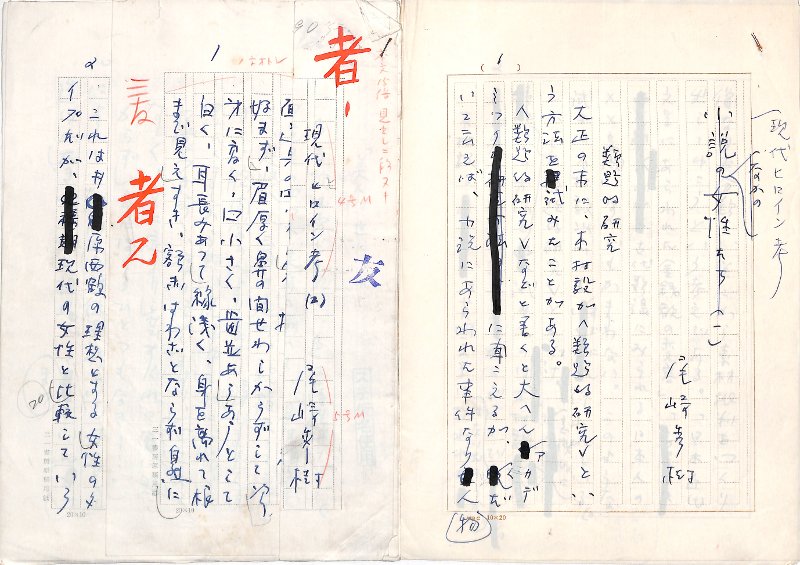 現代ヒロイン考
小説の女性たち(一)
なかの
尾崎秀樹
類題的研究
大正の末に、木村毅が〈類題的研究〉とい
う方法を試みたことがある。
〈類題的研究〉などと書くと大へんアカデ
ミックに聞こえるが、
いえば、小説にあらわれた事件なり人
物
(1)
者1
現代ヒロイン考(2)
尾崎秀樹
友
4号M
5号M
好まず、眉厚く鼻の間せわしからずして次
第に高く、口小さく、歯並あらあらとして
白く、耳長みあつて緑浅く、身を離れて根
まで見えすき、額ぎはわざとならず自然に
1
言友
者2
これは井原西鶴の理想とする女性のタ
イプだが、現代の女性と比較していろ
2
20
20×10
10×20